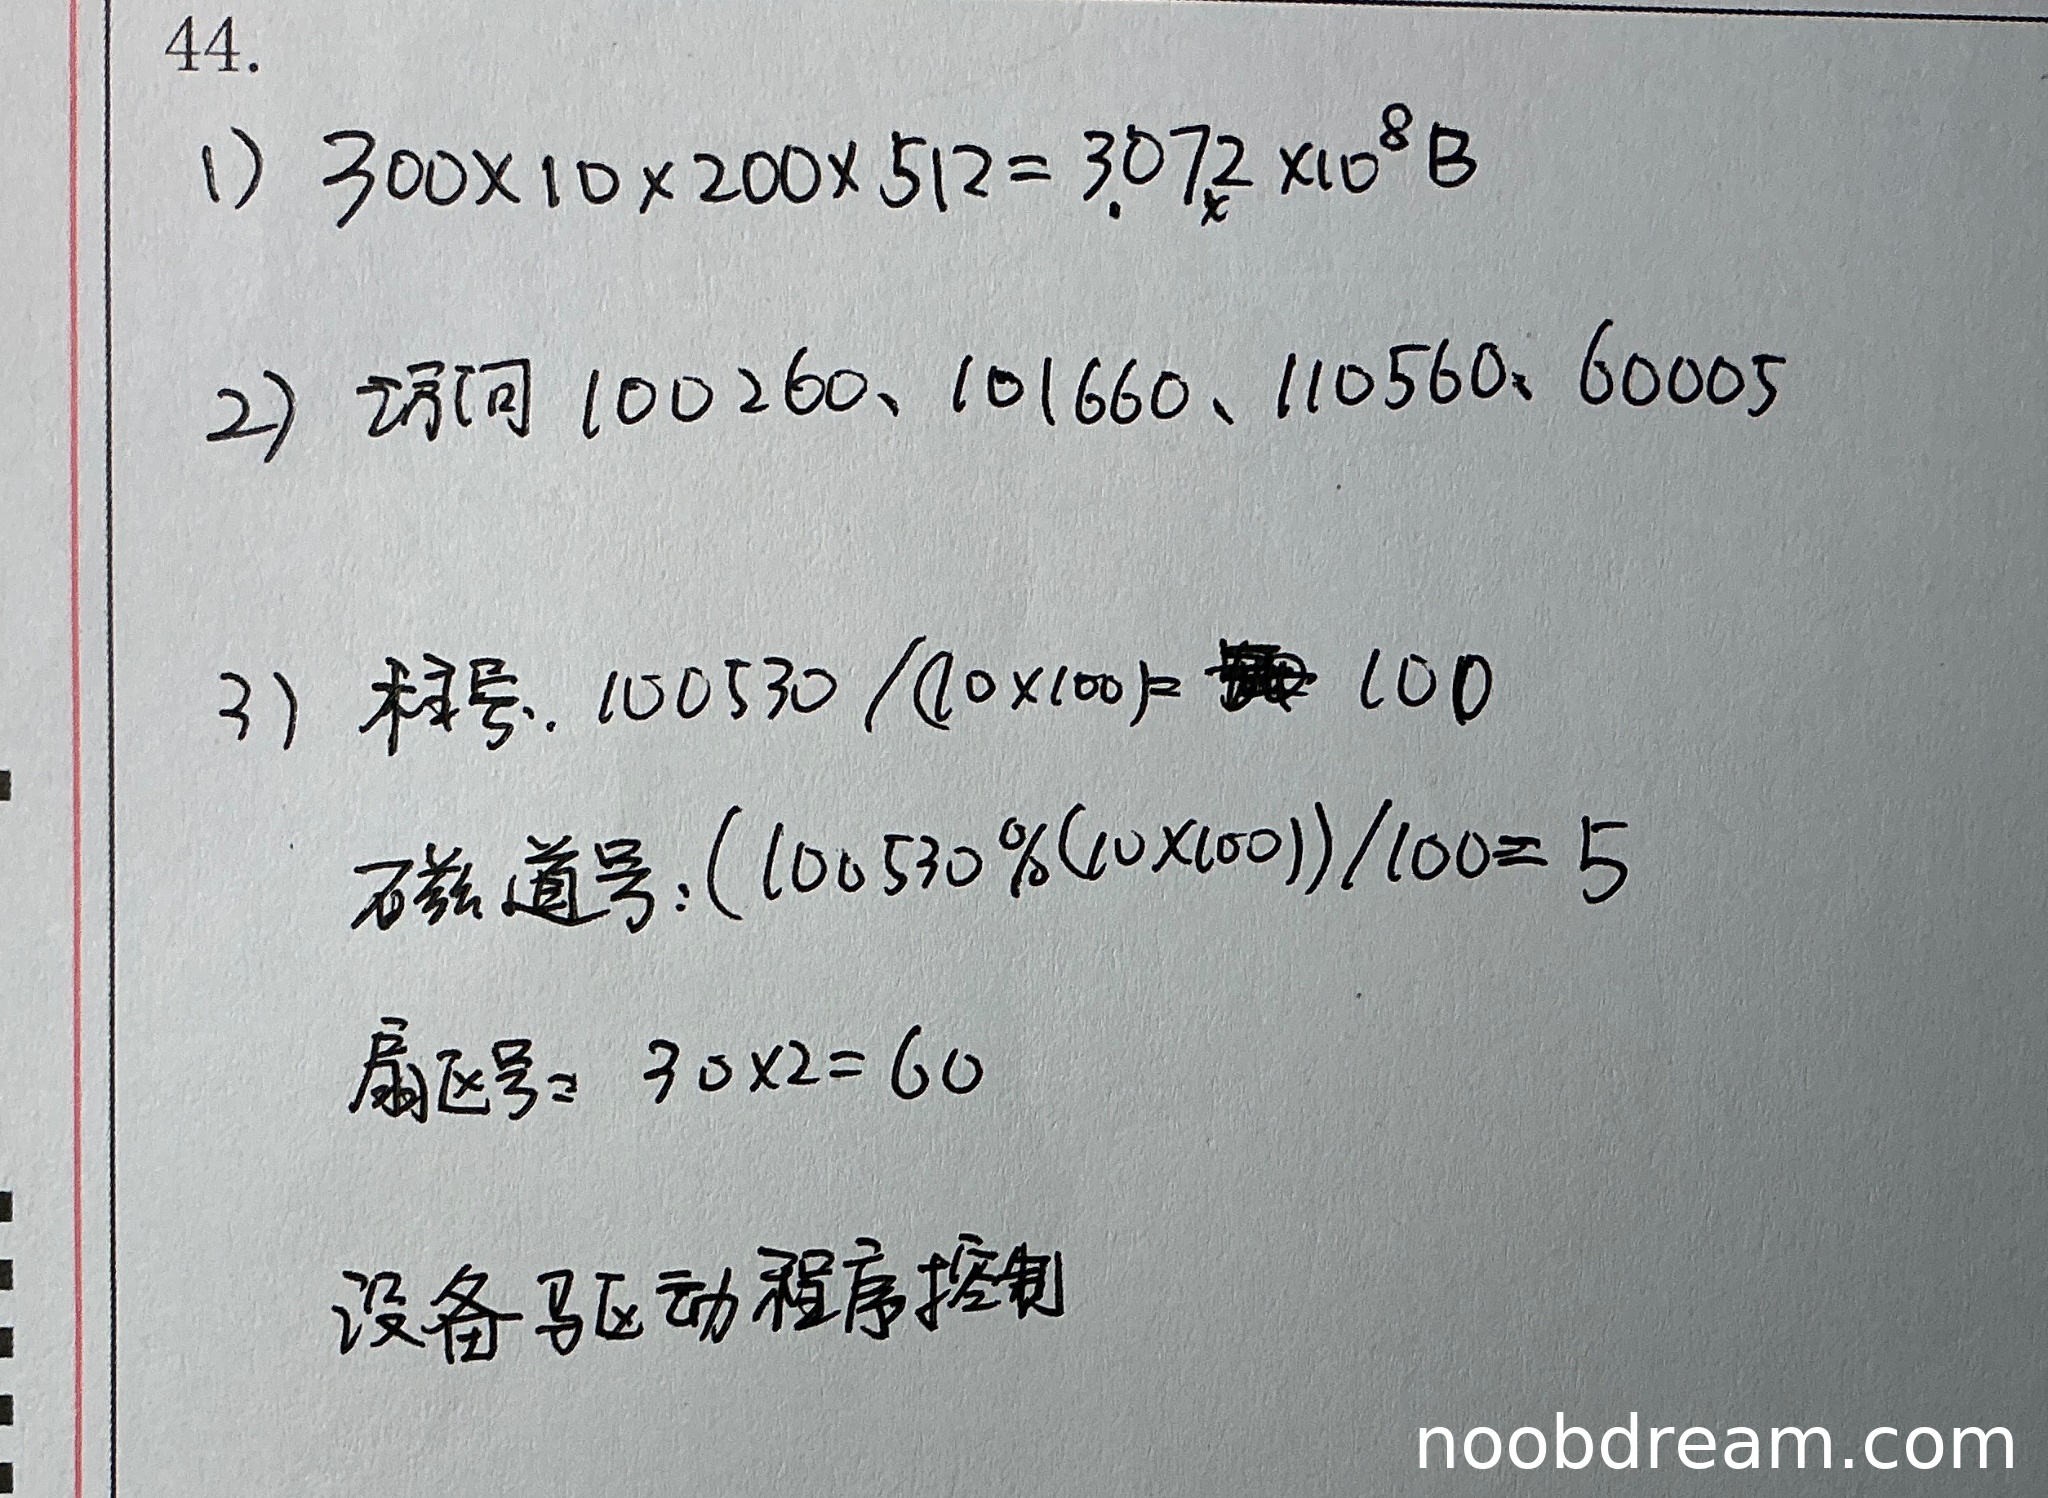 44.
1) 300×10×200×512=3.072×10⁸B
2) 访问 100260、101660、110560、60005
3) 柱号.. 100530/(10×100)= 100
磁道号:(100530%(10×100))/100=5
扇区号= 30×2=60
设备驱动程序控制
noobdream.com